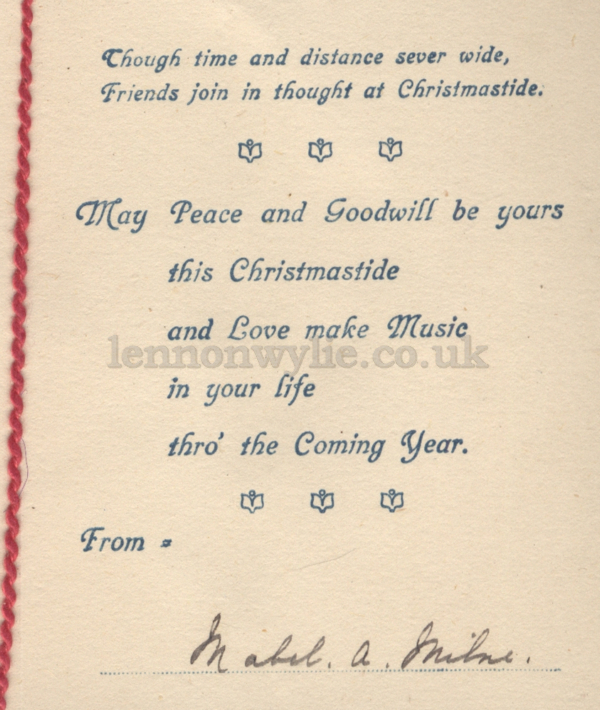 Though time and distance sever wide,
Friends join in thought at Christmastide.
May Peace and Goodwill be yours
this Christmastide
and Love make Music
lennonwylie.co.uk
in your life
thro' the Coming Year.
From =
Mabel. A. Milne.